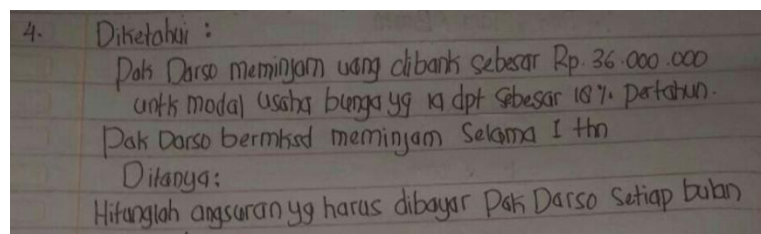 4. Diketahui :
Pak Darso meminjam uang dibank sebesar Rp. 36.000.000
untk modal usaha bunga yg ia dpt sebesar 18% pertahun.
Pak Darso bermksd meminjam selama 1 thn
Ditanya:
Hitunglah angsuran yg harus dibayar Pak Darso setiap bulan